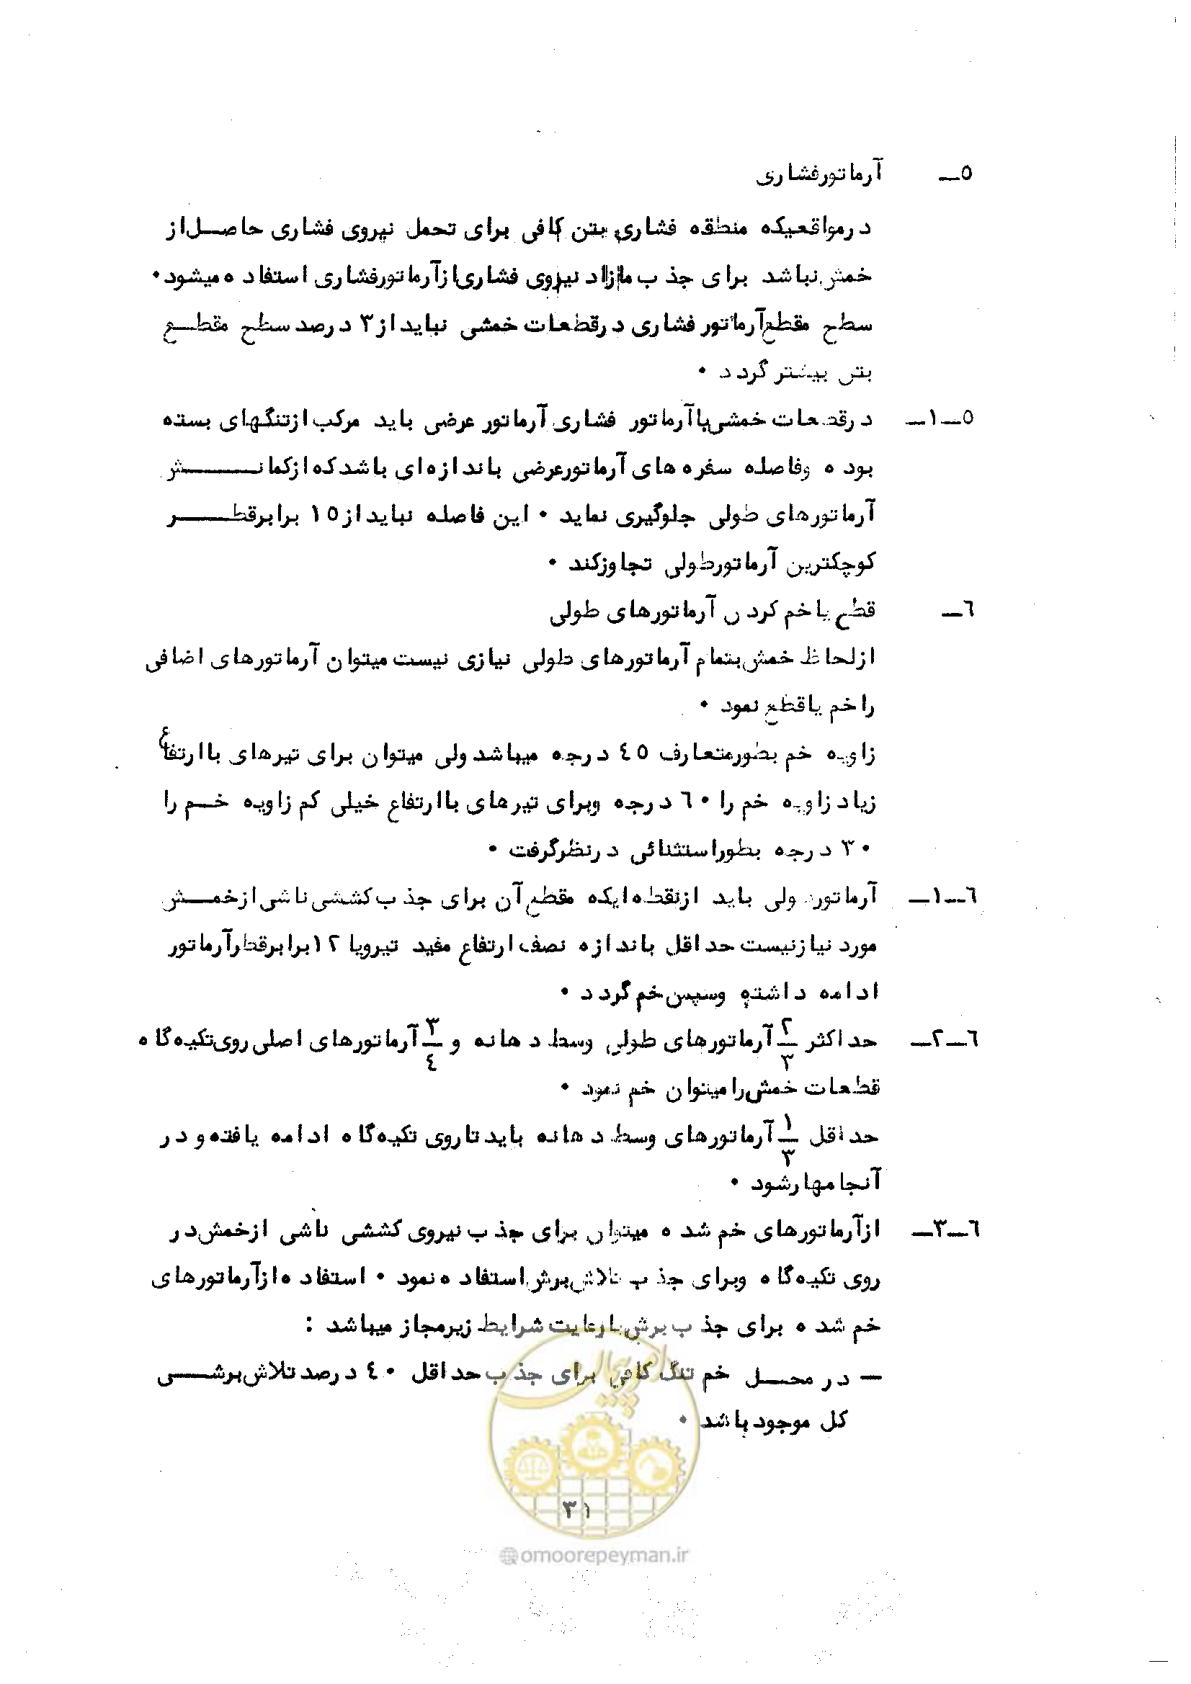 ۵ــ آرماتورفشاری
درمواقعیکه منطقه فشاری بتن کافی برای تحمل نیروی فشاری حاصل از
خمش نباشد برای جذب مازاد نیروی فشاری ازآرماتورفشاری استفاده میشود۰
سطح مقطع آرماتور فشاری درقطعات خمشی نباید از ۳ درصد سطح مقطـع
بتن بیشتر گردد ۰
۵ــ۱ــ درقطعات خمشی باآرماتور فشاری آرماتور عرضی باید مرکب ازتنگهای بسته
بوده وفاصله سفره های آرماتورعرضی باندازه‌ای باشدکه ازکمانـــــش
آرماتورهای طولی جلوگیری نماید ۰ این فاصله نباید از ۱۵ برابرقطـــــر
کوچکترین آرماتورطولی تجاوزکند ۰
۶ــ قطع یاخم کردن آرماتورهای طولی
ازلحاظ خمش بتمام آرماتورهای طولی نیازی نیست میتوان آرماتورهای اضافی
را خم یاقطع نمود ۰
زاویه خم بطورمتعارف ۴۵ درجه میباشد ولی میتوان برای تیرهای باارتفاع
زیاد زاویه خم را ۶۰ درجه وبرای تیرهای باارتفاع خیلی کم زاویه خـم را
۳۰ درجه بطوراستثنائی درنظرگرفت ۰
۶ــ۱ــ آرماتور ولی باید ازنقطه‌ایکه مقطع آن برای جذب کششی ناشی ازخمـــش
مورد نیازنیست حداقل باندازه نصف ارتفاع مفید تیرویا ۱۲برابرقطرآرماتور
ادامه داشته وسپس خم گردد ۰
۶ــ۲ــ حداکثر ۲/۳ آرماتورهای طولی وسط دهانه و ۳/۴ آرماتورهای اصلی روی تکیه‌گاه
قطعات خمش را میتوان خم نمود ۰
حداقل ۱/۳ آرماتورهای وسط دهانه باید تا روی تکیه‌گاه ادامه یافته و در
آنجا مهارشود ۰
۶ــ۳ــ ازآرماتورهای خم شده میتوان برای جذب نیروی کششی ناشی ازخمش در
روی تکیه‌گاه وبرای جذب تلاش برش استفاده نمود ۰ استفاده ازآرماتورهای
خم شده برای جذب برش بارعایت شرایط زیرمجاز میباشد :
ــ در محـــل خم تنگ کافی برای جذب حداقل ۴۰ درصد تلاش برشـــی
کل موجود باشد ۰
امور پیمان
۳۱
@omoorepeyman.ir